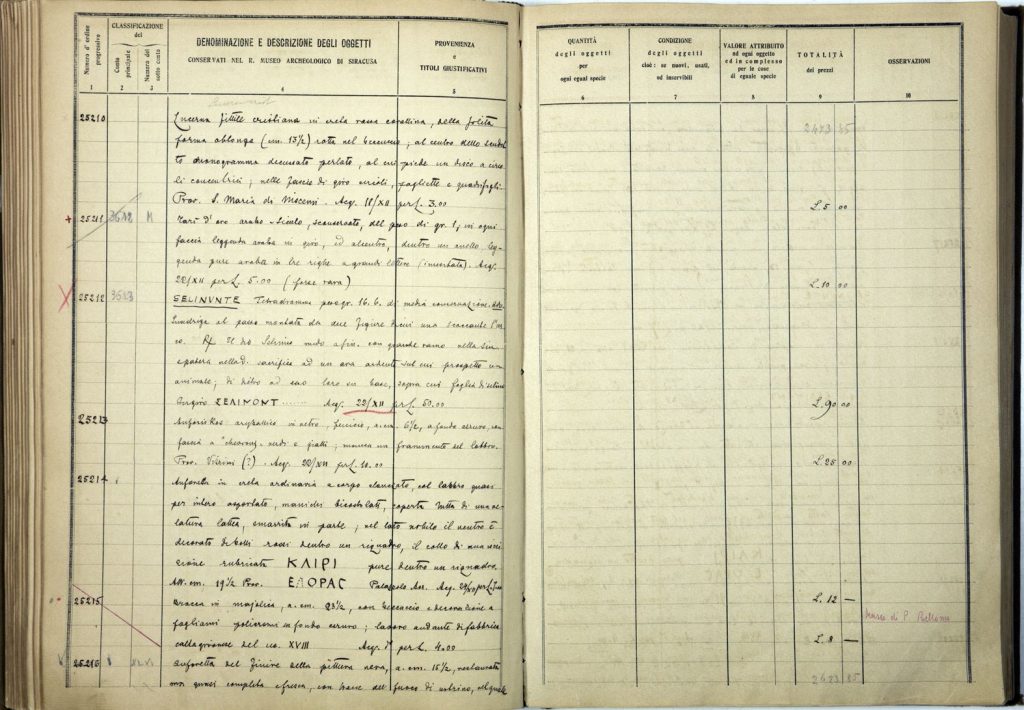 Numero d'ordine progressivo
CLASSIFICAZIONE
del
Conto principale
Numero del sotto conto
DENOMINAZIONE E DESCRIZIONE DEGLI OGGETTI
CONSERVATI NEL R. MUSEO ARCHEOLOGICO DI SIRACUSA
PROVENIENZA
e
TITOLI GIUSTIFICATIVI
1 2 3 4 5
25210 Lucerna fittile cristiana in creta rossa corallina, della solita
forma oblonga (cm. 13½) rotta nel beccuccio; al centro dello
to monogramma decussato perlato, al cui piede un disco a circo
li concentrici; nelle fascie di giro circoli, fogliette e quadrifogli.
Prov. S. Maria di Niscemi. Acq. 18/XII per L. 3.00
25211 3612 M Tarì d'oro arabo-siculo, sconservato, del peso di gr. 1; in ogni
faccia leggenda araba in giro, ed al centro, dentro un anello, leg-
genda pure araba in tre righe a grandi lettere (inventata). Acq.
22/XII per L. 5.00 (forse rara)
25212 3613 SELINVNTE Tetradramma peso gr. 16.6. di media conservazione.
Quadriga al passo montata da due figure di cui una
co. Rf Il dio Selinus nudo a sin. con grande ramo nella sin.
e patera nella d. sacrifica ad un ara ardente sul cui prospetto un
animale; di dietro ad esso toro su base, sopra cui foglia di selino
ΣΕΛΙΝΟΝΤ ........ Acq. 22/XII per L. 50.00
25213 in vetro, a cm. 6½, a fondo ceruleo, con
fascia a chevrons verdi e gialli; manca un frammento del labbro.
Prov. (?). Acq. 22/XII per L. 10.00
25214 Anforetta in creta ordinaria a corpo slanciato, col labbro quasi
per intero asportato, manichi bicostolati, coperta tutta di una ve-
latura lattea, smarrita in parte; nel lato nobile il ventre è
decorato di rossi dentro un riquadro, il collo di una iscri
zione rubricata ΚΑΙΡΙ pure dentro un riquadro.
Alt. cm. 19½ Prov. ΕΛΟΡΑC Palazzolo Acr. Acq. 22/XII per L.
25215 Brocca in majolica, a. cm. 23½, con beccaccio e decorazione a
fogliami policromi su fondo ceruleo; lavoro andante di fabbrica
caltagironese del sec. XVIII Acq. per L. 4.00
25216 Anforetta del Finire della pittura nera, a. cm. 15½, restaurata
ma quasi completa e fresca, con tracce del fuoco di ustrino, nel quale
QUANTITÀ
degli oggetti
per
ogni egual specie
CONDIZIONE
degli oggetti
cioè: se nuovi, usati,
od inservibili
VALORE ATTRIBUITO
ad ogni oggetto
ed in complesso
per le cose
di eguale specie
TOTALITÀ
dei prezzi
OSSERVAZIONI
6 7 8 9 10
2473 85
L. 5 00
L. 10 00
L. 90 00
L. 25 00
L. 12 —
Museo di P. Bellomo
L. 8 —
2623 85